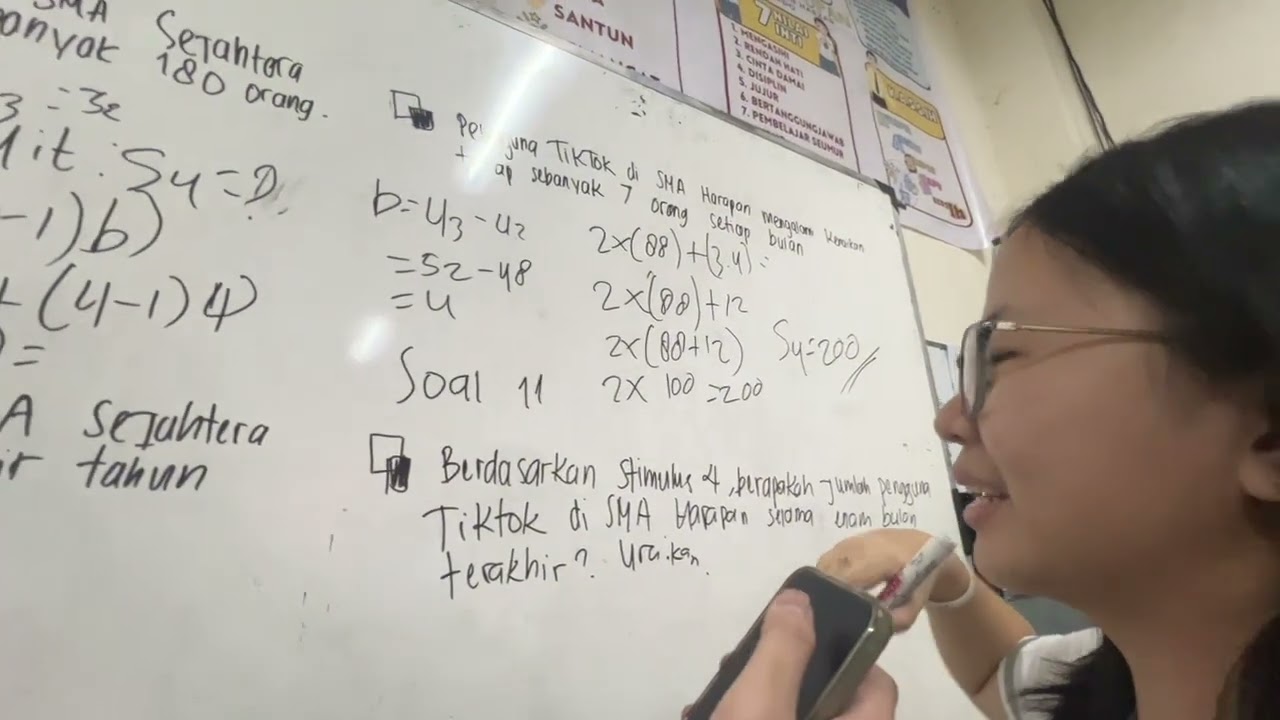 SMA Sejahtera
banyak 180 orang.
3 = 32
it : S4 = D
-1)b)
+ (4-1)4)
=
A Sejahtera
ir tahun
Pe guna TikTok di SMA Harapan mengalami kenaikan
t ap sebanyak 7 orang setiap bulan
b = U3 - U2
= 52 - 48
= 4
2x(88)+(3.4) =
2x(88)+12
2x(88+12)
2x 100 = 200
S4 = 200 //
Soal 11
Berdasarkan Stimulus 4, berapakah jumlah pengguna
Tiktok di SMA Harapan selama enam bulan
terakhir? Uraikan.
SANTUN
7 NILAI
INTI
1. MENGASIHI
2. RENDAH HATI
3. CINTA DAMAI
4. DISIPLIN
5. JUJUR
6. BERTANGGUNGJAWAB
7. PEMBELAJAR SEUMUR